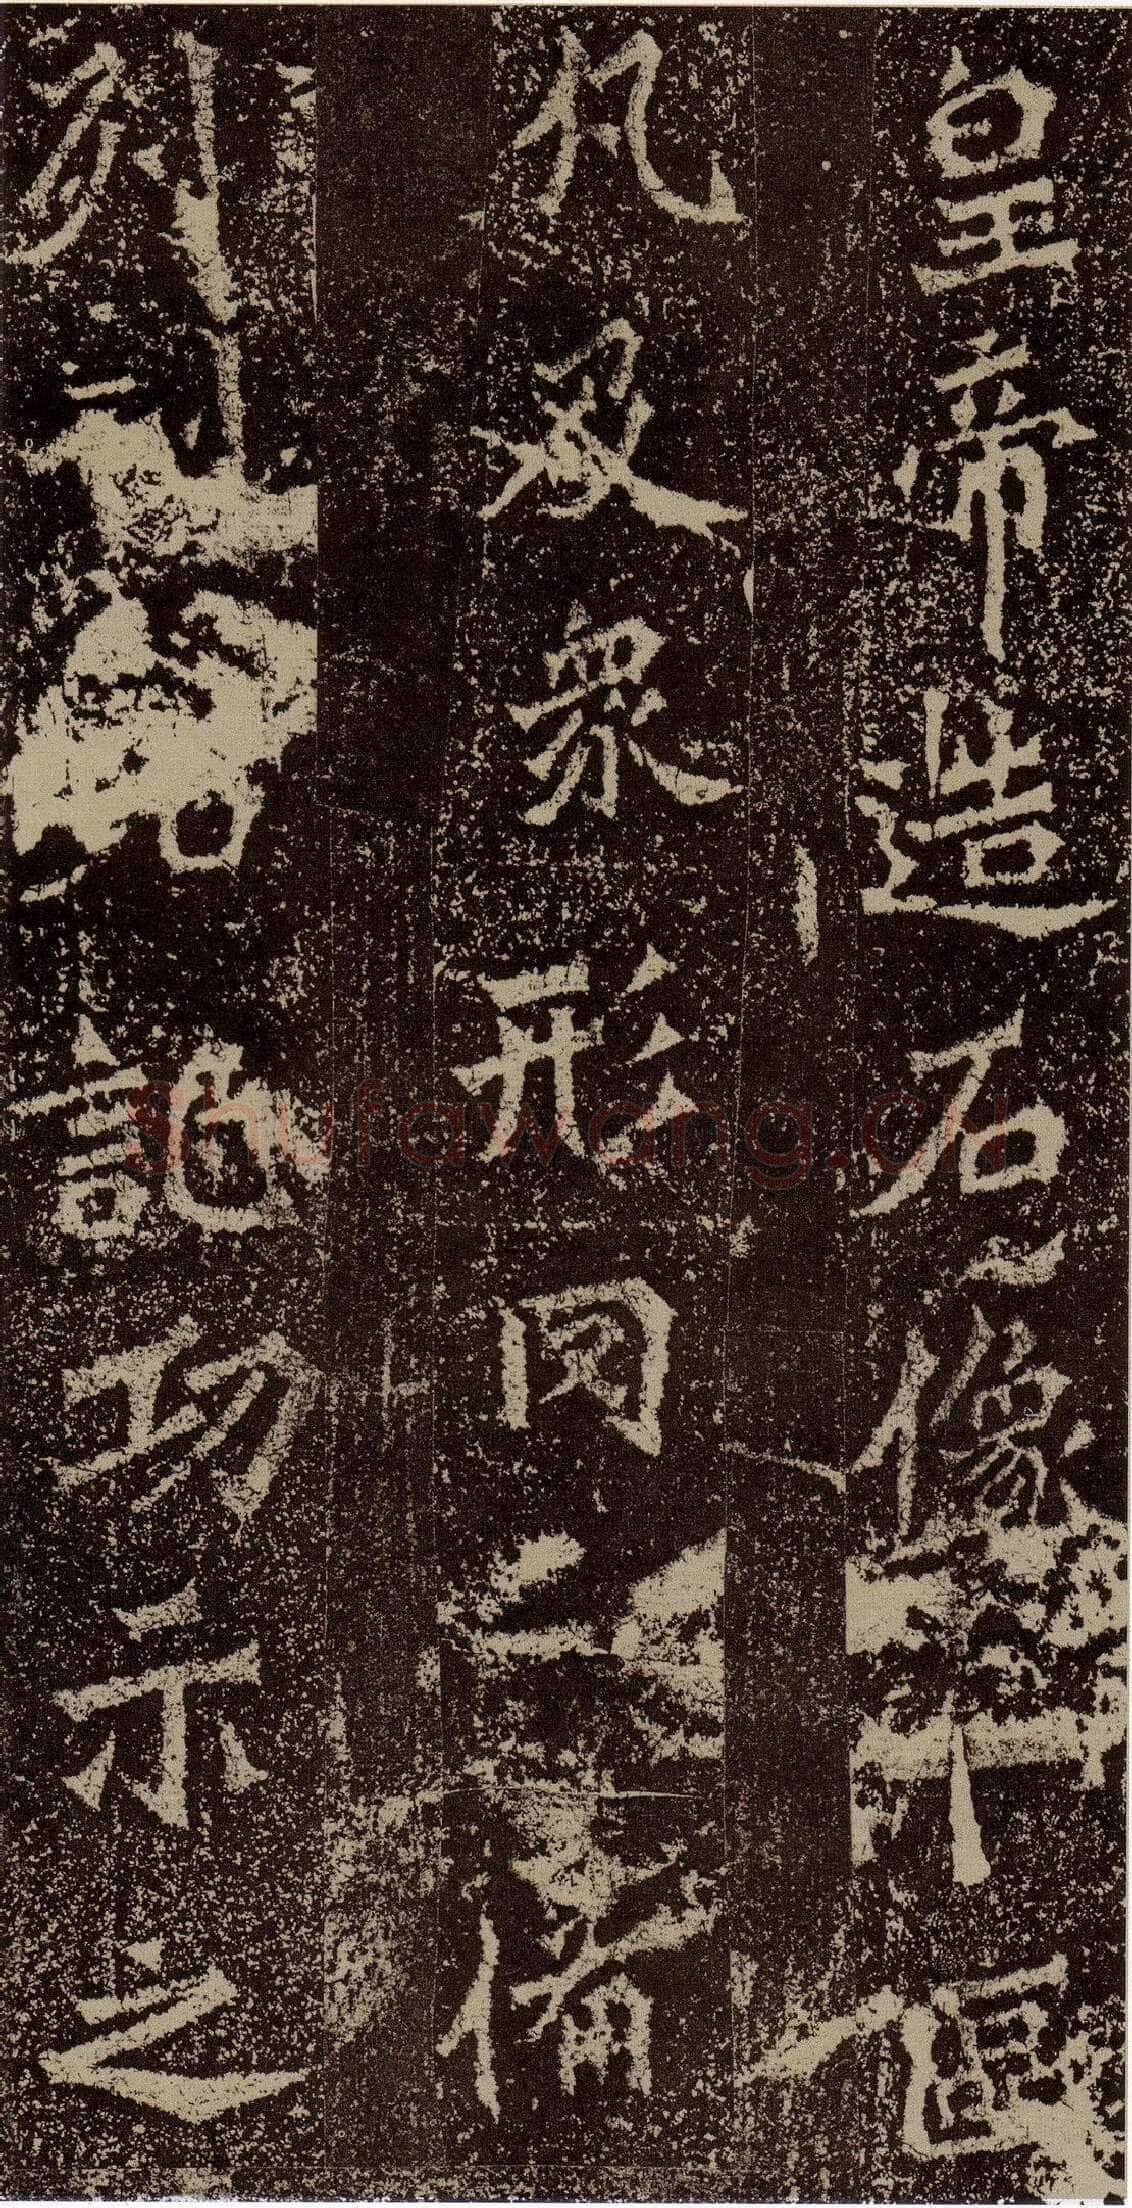 皇帝造石像區
凡及眾形罔備
列刊記功示之
Shufawang.CN